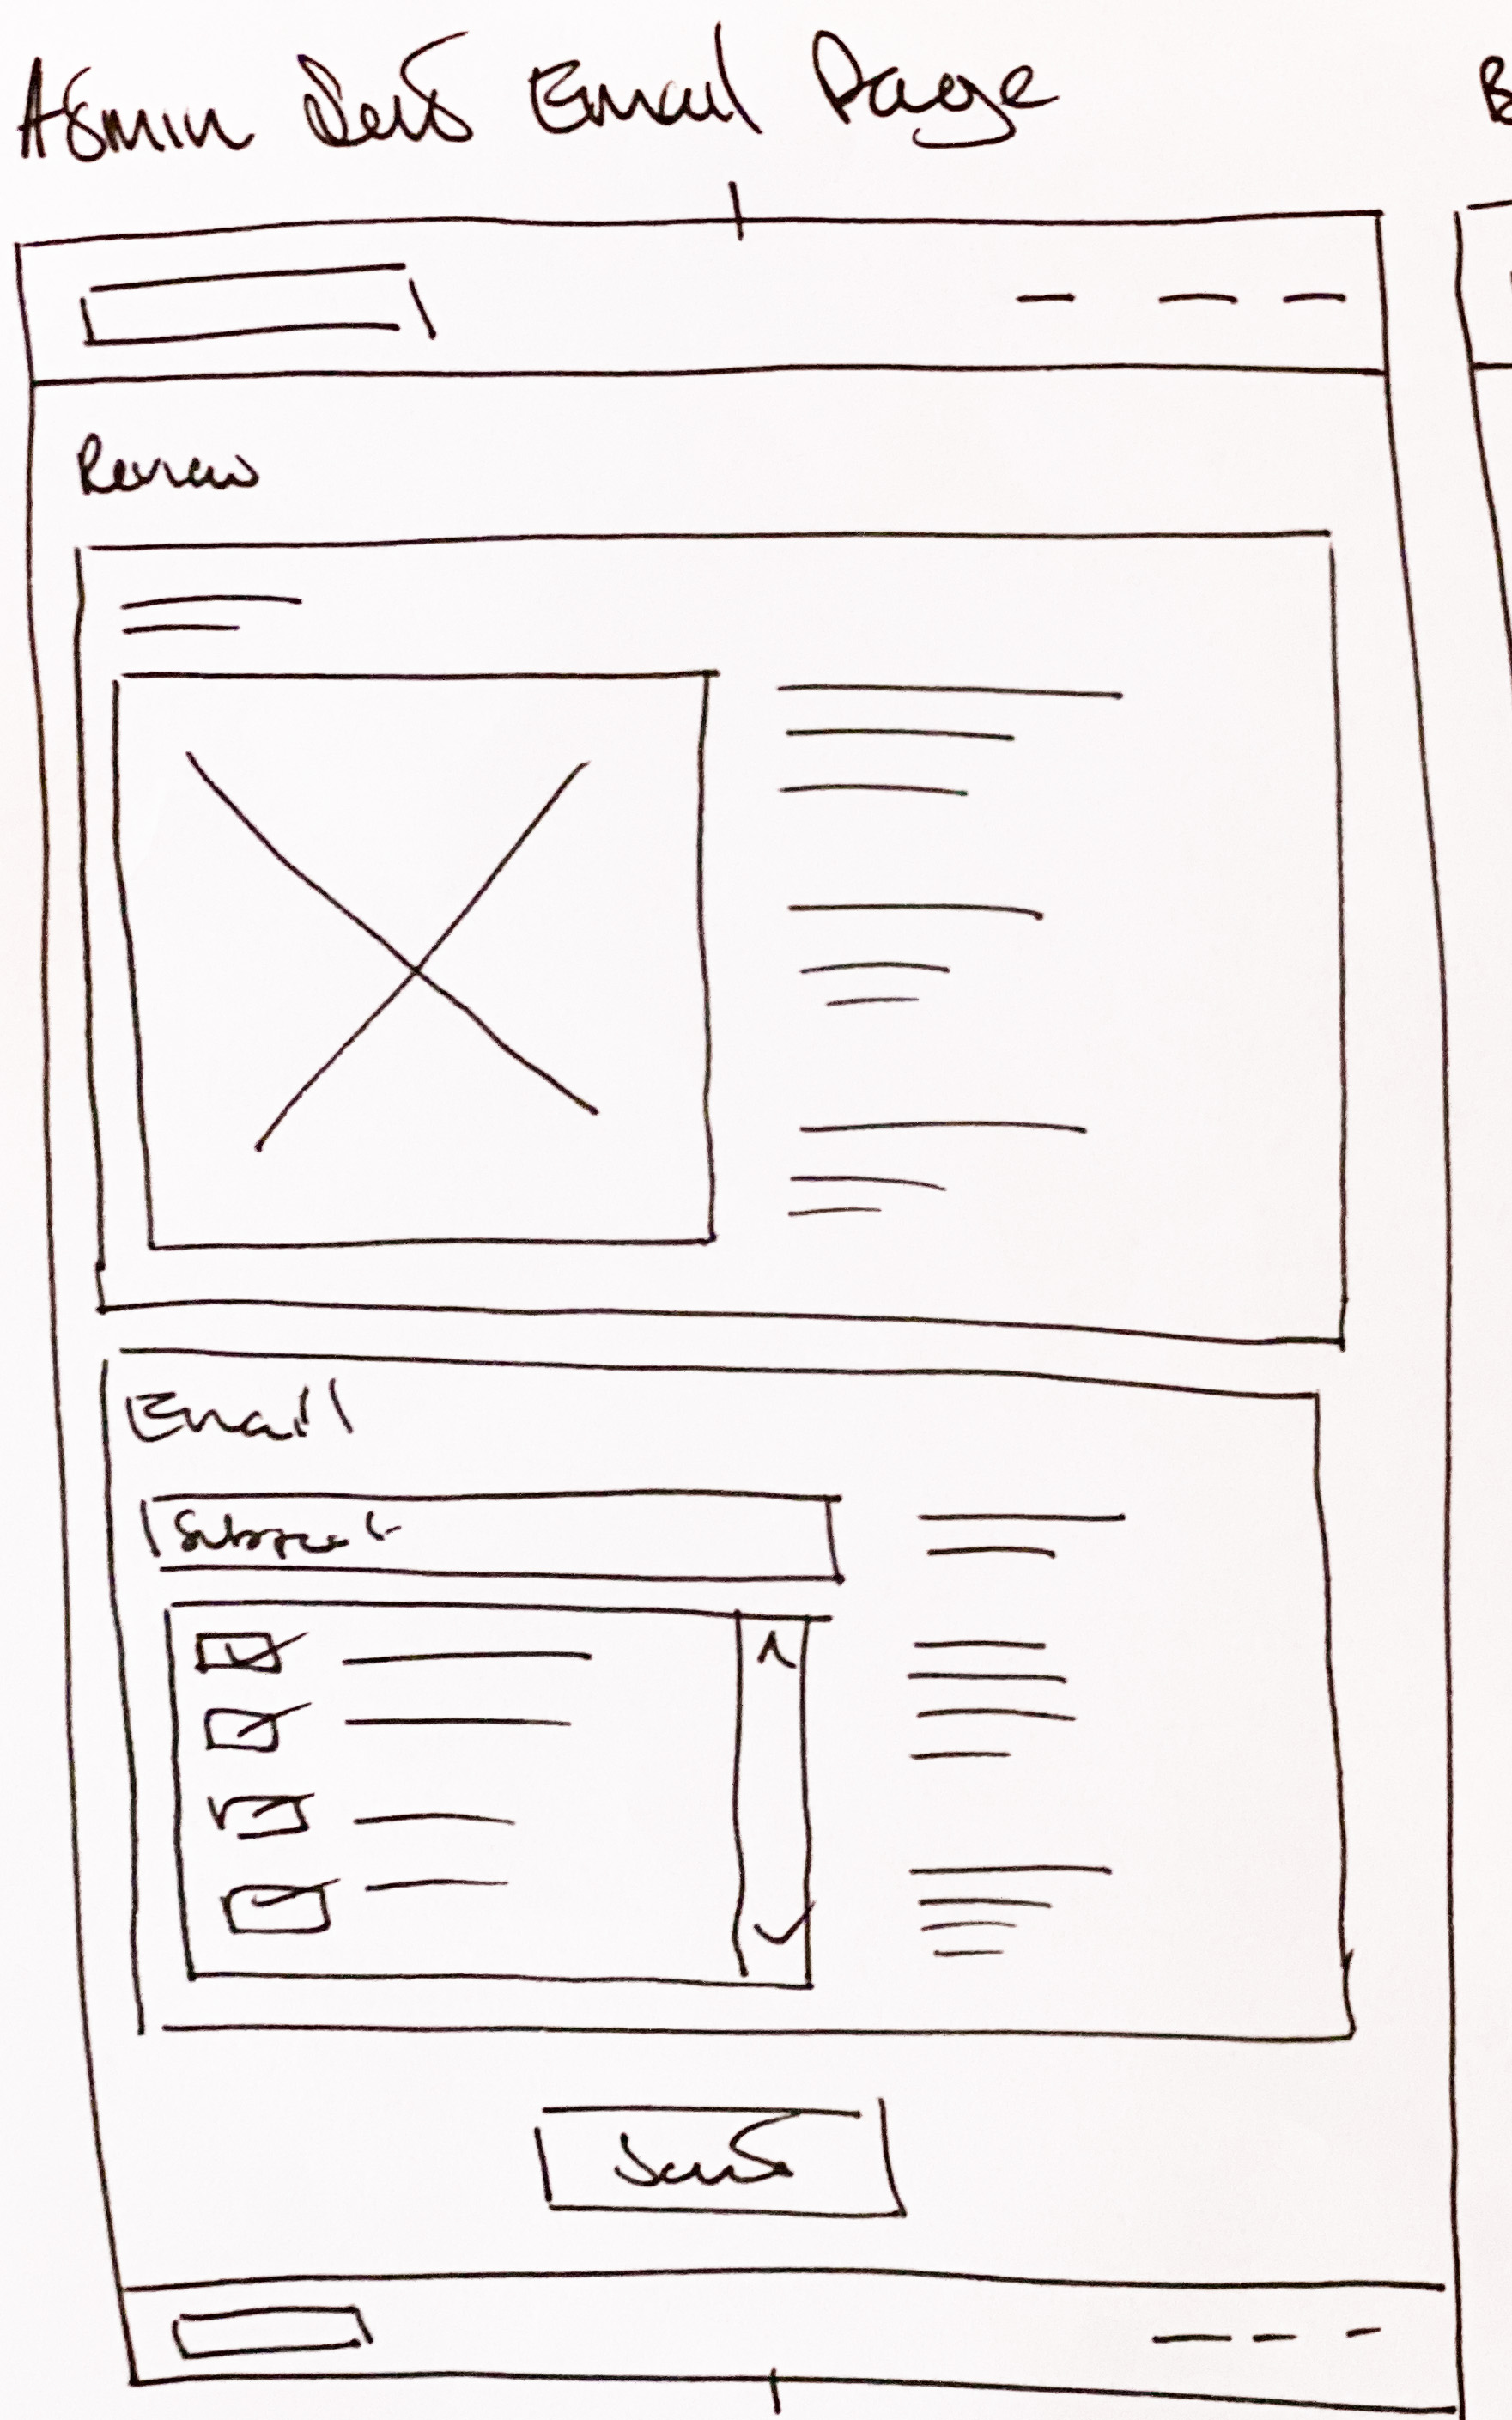 Admin Send Email Page
Review
Email
Subject
Send